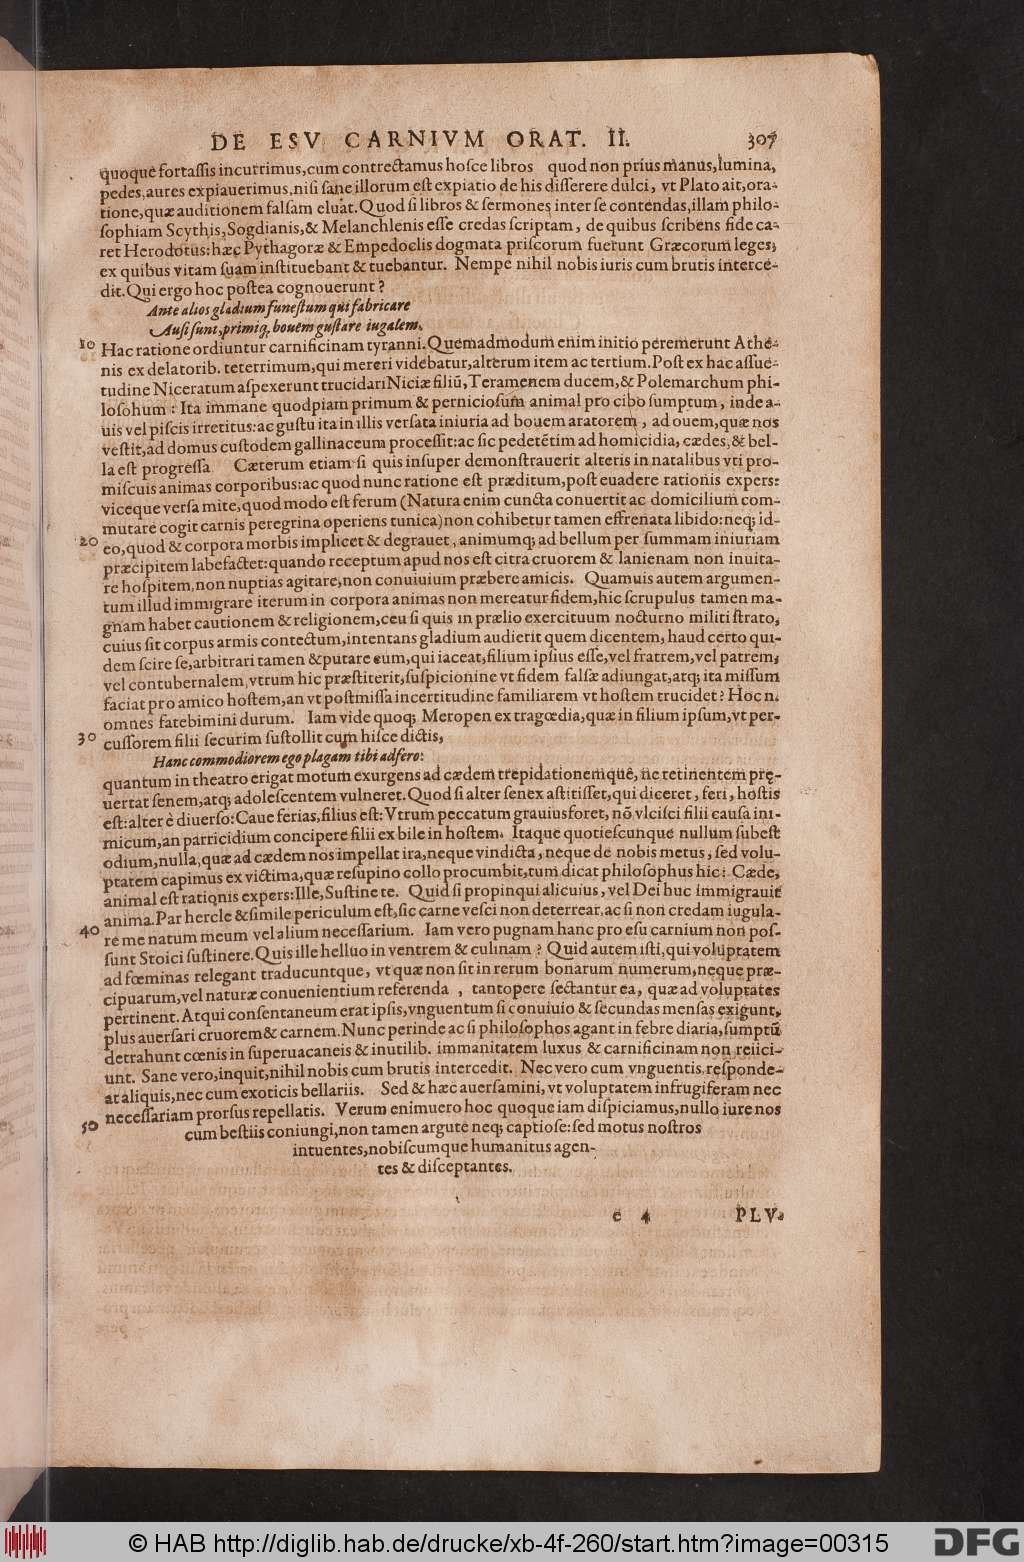 DE ESV CARNIVM ORAT. II. 307
quoque fortaſſis incurrimus,cum contrectamus hoſce libros quod non prius manus,lumina,
pedes,aures expiauerimus,niſi ſane illorum eſt expiatio de his diſſerere dulci, vt Plato ait,ora-
tione,quæ auditionem falſam eluat.Quod ſi libros & ſermones inter ſe contendas,illam philo-
ſophiam Scythis,Sogdianis,& Melanchlenis eſſe credas ſcriptam, de quibus ſcribens fide ca-
ret Herodotus:hæc Pythagoræ & Empedoclis dogmata priſcorum fuerunt Græcorum leges,
ex quibus vitam ſuam inſtituebant & tuebantur. Nempe nihil nobis iuris cum brutis interce-
dit.Qui ergo hoc poſtea cognouerunt?
Ante alios gladium funeſtum qui fabricare
Auſi ſunt,primiq́; bouem guſtare iugalem.
10 Hac ratione ordiuntur carnificinam tyranni.Quemadmodum enim initio peremerunt Athe-
nis ex delatorib. teterrimum,qui mereri videbatur,alterum item ac tertium.Poſt ex hac aſſue-
tudine Niceratum aſpexerunt trucidari Niciæ filiū,Teramenem ducem,& Polemarchum phi-
loſohum: Ita immane quodpiam primum & pernicioſum animal pro cibo ſumptum, inde a-
uis vel piſcis irretitus:ac guſtu ita in illis verſata iniuria ad bouem aratorem, ad ouem,quæ nos
veſtit,ad domus cuſtodem gallinaceum proceſſit:ac ſic pedetētim ad homicidia, cædes,& bel-
la eſt progreſſa Cæterum etiam ſi quis inſuper demonſtrauerit alteris in natalibus vti pro-
miſcuis animas corporibus:ac quod nunc ratione eſt præditum,poſt euadere rationis expers:
viceque verſa mite,quod modo eſt ferum (Natura enim cuncta conuertit ac domicilium com-
mutare cogit carnis peregrina operiens tunica)non cohibetur tamen effrenata libido:neq; id-
20 eo,quod & corpora morbis implicet & degrauet,animumq; ad bellum per ſummam iniuriam
præcipitem labefactet:quando receptum apud nos eſt citra cruorem & lanienam non inuita-
re hoſpitem,non nuptias agitare,non conuiuium præbere amicis. Quamuis autem argumen-
tum illud immigrare iterum in corpora animas non mereatur fidem,hic ſcrupulus tamen ma-
gnam habet cautionem & religionem,ceu ſi quis in prælio exercituum nocturno militi ſtrato,
cuius ſit corpus armis contectum,intentans gladium audierit quem dicentem, haud certo qui-
dem ſcire ſe,arbitrari tamen & putare eum,qui iaceat,filium ipſius eſſe,vel fratrem,vel patrem,
vel contubernalem,vtrum hic præſtiterit,ſuſpicionine vt fidem falſæ adiungat,atq; ita miſſum
faciat pro amico hoſtem,an vt poſtmiſſa incertitudine familiarem vt hoſtem trucidet? Hoc n.
omnes fatebimini durum. Iam vide quoq; Meropen ex tragœdia,quæ in filium ipſum,vt per-
30 cuſſorem filii ſecurim ſuſtollit cum hiſce dictis,
Hanc commodiorem ego plagam tibi adfero:
quantum in theatro erigat motum exurgens ad cædem trepidationemque, ne retinentem prę-
uertat ſenem,atq; adoleſcentem vulneret.Quod ſi alter ſenex aſtitiſſet,qui diceret, feri, hoſtis
eſt:alter è diuerſo:Caue ferias,filius eſt:Vtrum peccatum grauius foret, nō vlciſci filii cauſa ini-
micum,an parricidium concipere filii ex bile in hoſtem. Itaque quotieſcunque nullum ſubeſt
odium,nulla,quæ ad cædem nos impellat ira,neque vindicta, neque de nobis metus, ſed volu-
ptatem capimus ex victima,quæ reſupino collo procumbit,tum dicat philoſophus hic: Cæde,
animal eſt rationis expers:Ille,Suſtine te. Quid ſi propinqui alicuius, vel Dei huc immigrauit
anima.Par hercle & ſimile periculum eſt,ſic carne veſci non deterrear,ac ſi non credam iugula-
40 re me natum meum vel alium neceſſarium. Iam vero pugnam hanc pro eſu carnium non poſ-
ſunt Stoici ſuſtinere.Quis ille helluo in ventrem & culinam? Quid autem iſti,qui voluptatem
ad fœminas relegant traducuntque, vt quæ non ſit in rerum bonarum numerum,neque præ-
cipuarum,vel naturæ conuenientium referenda, tantopere ſectantur ea, quæ ad voluptates
pertinent.Atqui conſentaneum erat ipſis,vnguentum ſi conuiuio & ſecundas menſas exigunt,
plus auerſari cruorem & carnem.Nunc perinde ac ſi philoſophos agant in febre diaria,ſumptū
detrahunt cœnis in ſuperuacaneis & inutilib. immanitatem luxus & carnificinam non reiici-
unt. Sane vero,inquit,nihil nobis cum brutis intercedit. Nec vero cum vnguentis,reſponde-
at aliquis,nec cum exoticis bellariis. Sed & hæc auerſamini,vt voluptatem infrugiferam nec
neceſſariam prorſus repellatis. Verum enimuero hoc quoque iam diſpiciamus,nullo iure nos
50 cum beſtiis coniungi,non tamen argute neq; captioſe:ſed motus noſtros
intuentes,nobiſcumque humanitus agen-
tes & diſceptantes.
e 4 PLV-
© HAB http://diglib.hab.de/drucke/xb-4f-260/start.htm?image=00315 DFG